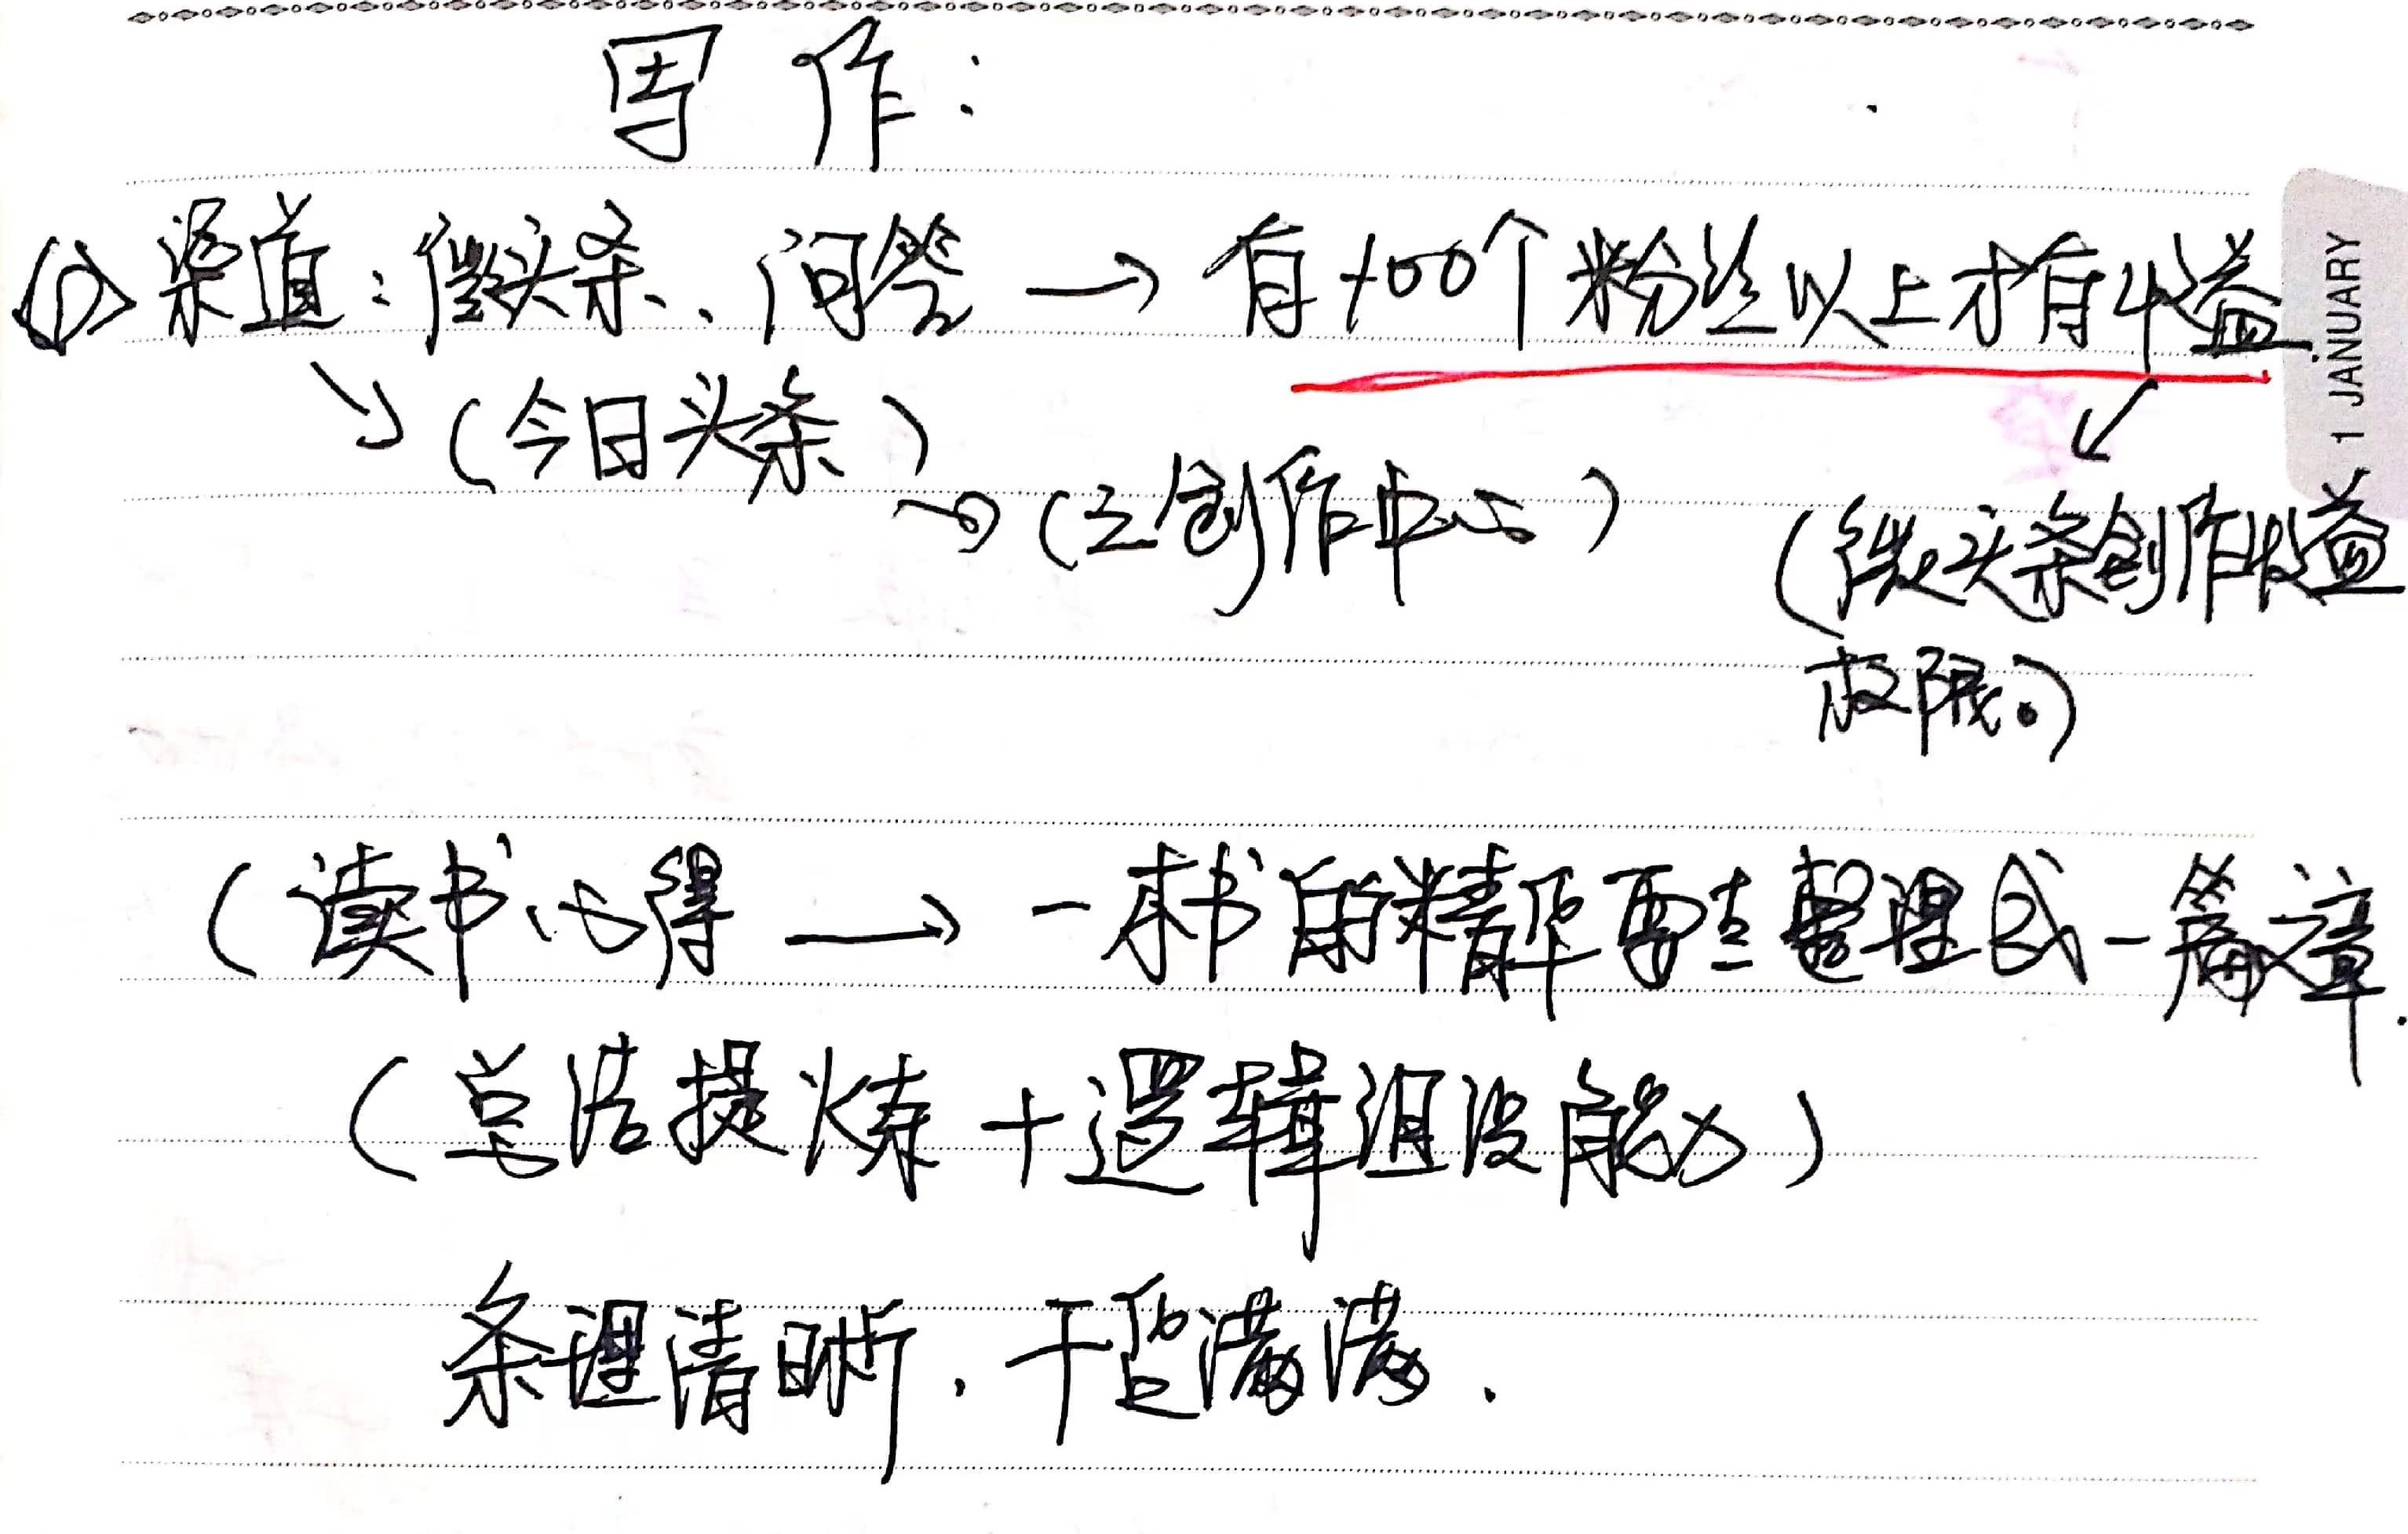 写作:
(1) 渠道:微头条、问答→有100个粉丝以上才有收益
↘(今日头条)
→(去创作中心)
(微头条创作收益
权限。)
(读书心得→一本书的精华要去整理成一篇文章.
(总结提炼+逻辑组没能力)
条理清晰.干货满满.
1 JANUARY